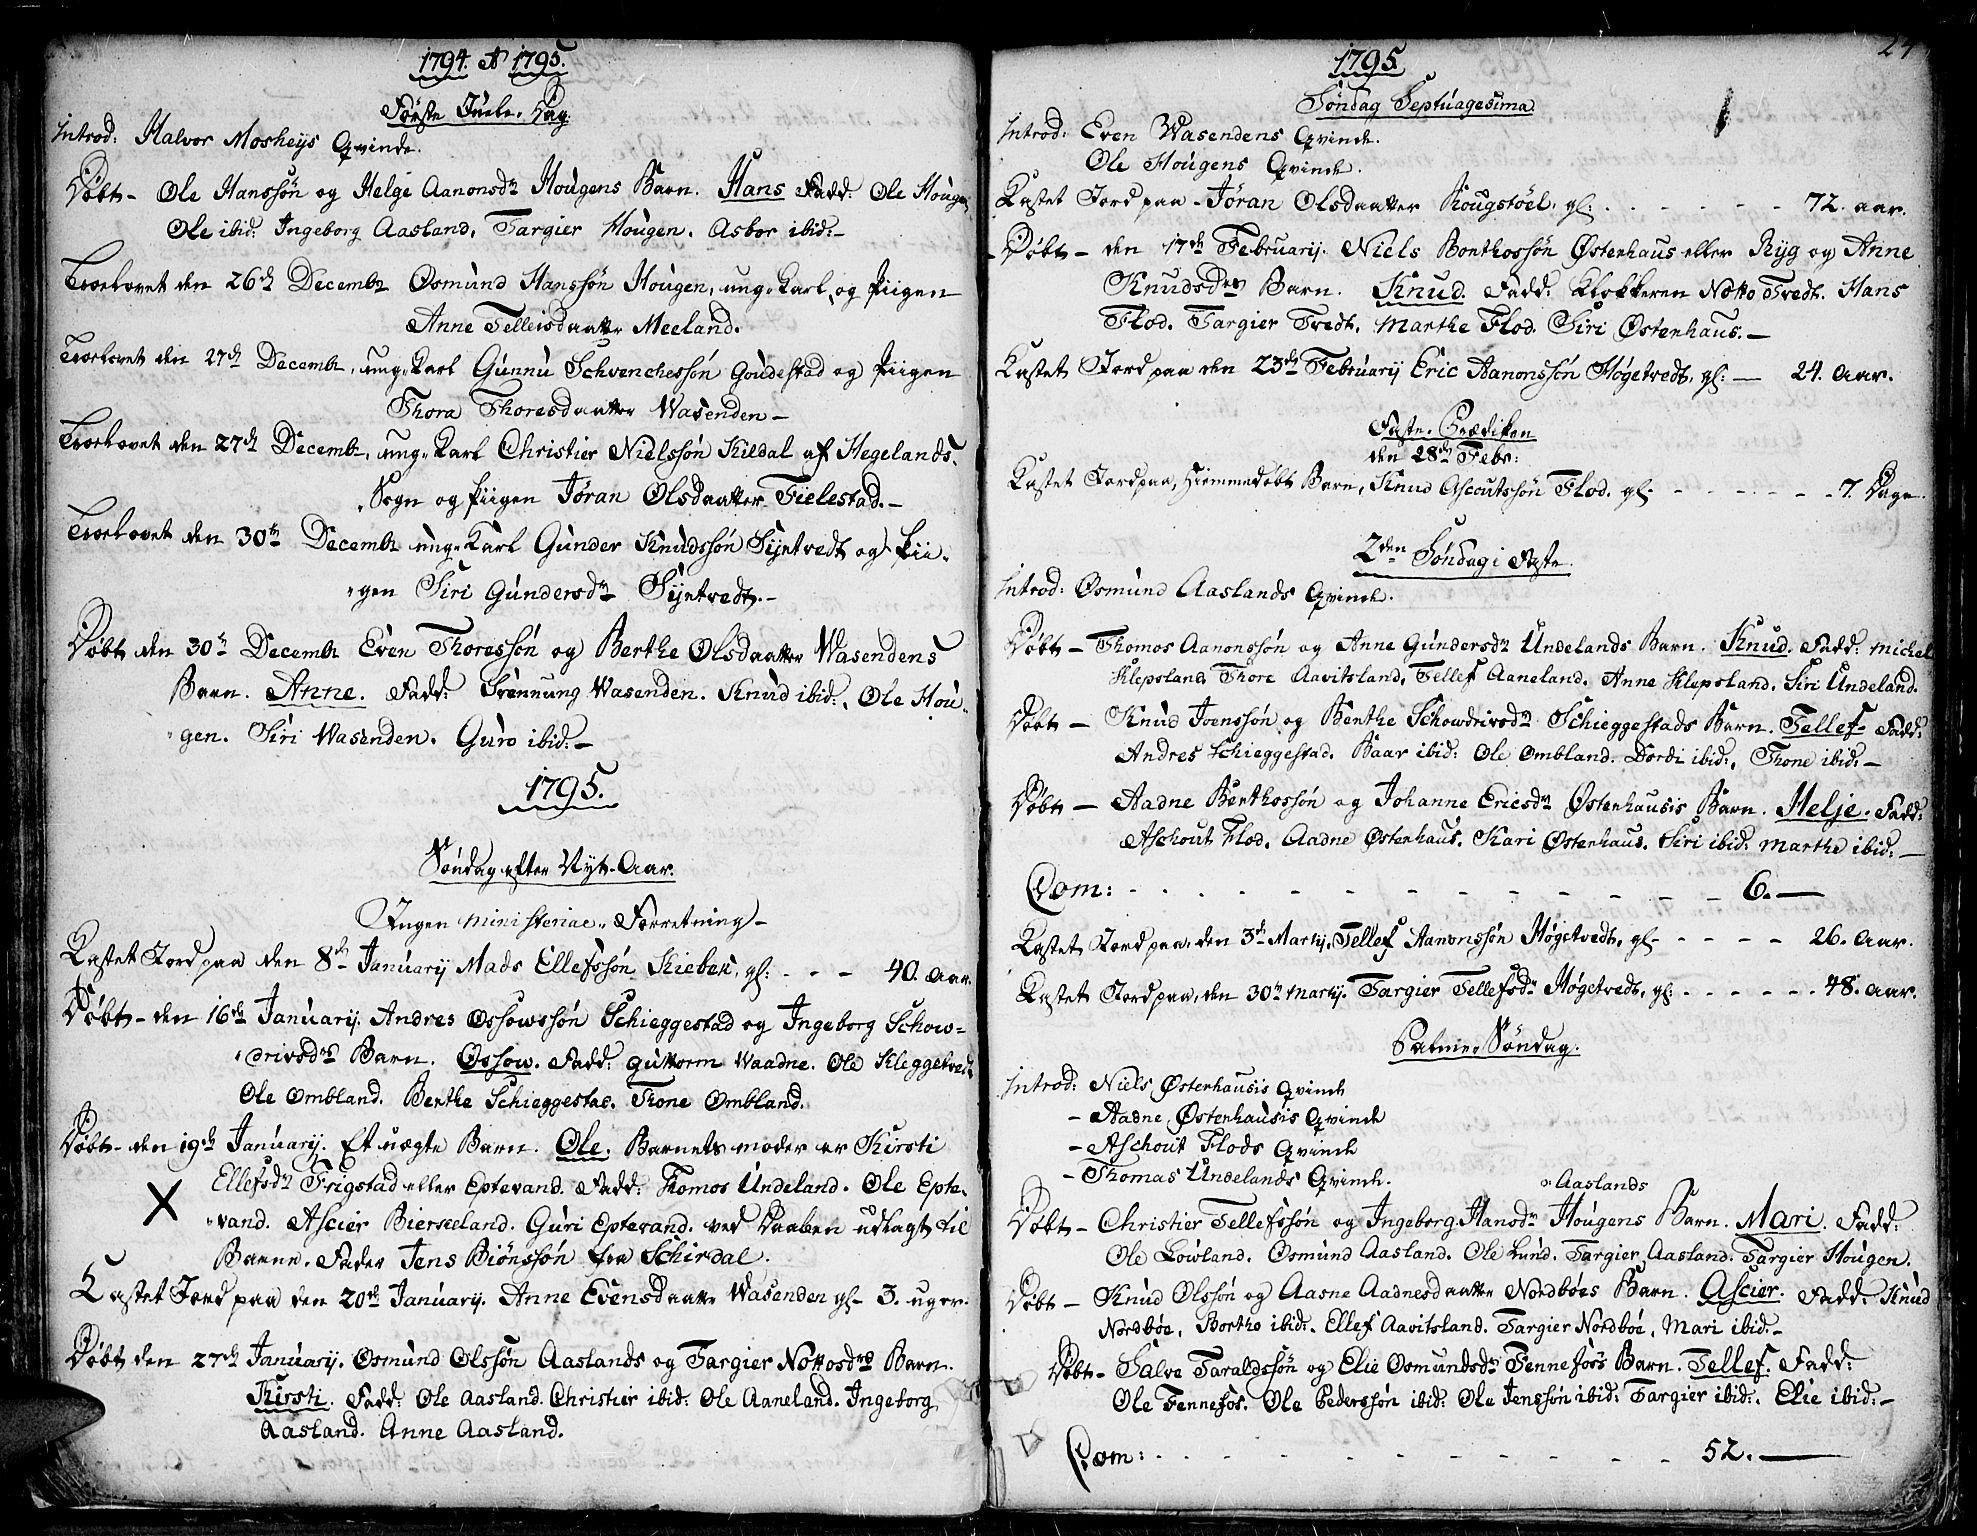 1794. et 1795.
Første Juele-Dag.
Introd: Halvor Mosheys Qvinde.
Døbt - Ole Hanssøn og Helge Aanonsdr Hougens Barn. Hans Fadd: Ole Hougen
Ole ibid: Ingeborg Aasland, Targier Hougen. Asbor ibid:-
Troelovet den 26de Decembr Osmund Hanssøn Hougen, ung-Karl, og Piigen
Anne Telleisdaatter Meeland.
Troelovet den 27de Decembr, ung-Karl Gunnu Schvenchessøn Goudestad og Piigen
Thora Thoresdaatter Wasenden-
Troelovet den 27de Decembr, ung-Karl Christier Nielssøn Kildal af Hegelands-
Sogn og Piigen Jøran Olsdaatter Fielestad.-
Troelovet den 30te Decembr ung-Karl Gunder Knudssøn Sijntvedt og Pii-
gen Siri Gundersdr Sijntvedt.-
Døbt den 30te Decembr Even Thoressøn og Berthe Olsdaatter Wasendens
Barn. Anne. Fadd: Svennung Wasenden. Knud ibid:, Ole Hou-
gen. Siri Wasenden. Guro ibid:-
1795.
Søndag efter Nyt-Aar.
Ingen ministeriae-Forretning-
Kastet Jord paa den 8de Januarij Mads Ellefssøn Kieben, gl: - - - 40. aar.
Døbt - den 16de Januarij. Andres Ossowssøn Schieggestad og Ingeborg Schow-
drivsdr Barn. Ossow. Fadd: Guttorm Waadne. Ole Kleggetvedt
Ole Ombland. Berthe Schieggestad. Thone Ombland.
Døbt - den 19de Januarij. Et uægte Barn. Ole. Barnets moder er Kirsti
Ellefsdr Frigstad eller Eptevand. Fadd: Thomos Undeland. Ole Epte-
vand. Ascier Bierseland. Guri Eptevand. ved Daaben udlagt til
Barne-Fader Jens Biönssøn fra Schirdal.
Kastet Jord paa den 20de Januarij. Anne Evensdaatter Wasenden gl- 3. uger.
Døbt den 27de Januarij. Osmund Olssøn Aaslands og Targier Nottosdrs Barn.
Kirsti. Fadd: Ole Aasland. Christier ibid: Ole Aaneland. Ingeborg
Aasland. Anne Aasland.
24
1795.
Søndag Septuagesima
Introd: Even Wasendens Qvinde.
Ole Hougens Qvinde.
Kastet Jord paa - Jøran Olsdaatter Rougstöel, gl: - - - - - - 72. aar.
Døbt - den 17de Februarij. Niels Bonthossøn Østenhaus eller Ryg og Anne
Knudsdrs Barn. Knud. Fadd: Klokkeren Notto Tvedt. Hans
Flod. Targier Tvedt. Marthe Flod. Siri Østenhaus.-
Kastet Jord paa den 23de Februarij Eric Aanonssøn Høgetvedt, gl: - 24. Aar.
Faste-Prædiken
den 28de Febr:
Kastet Jord paa, Hiemmedøbt Barn, Knud Ascoutssøn Flod. gl- - - - - - 7. Dage.
2den Søndag i Faste.
Introd: Osmund Aaslands Qvinde.
Døbt - Thomos Aanonssøn og Anne Gundersdr Undelands Barn. Knud. Fadd: Michel
Klepsland. Thore Aavitsland. Tellef Aaneland. Anne Klepsland. Siri Undeland.
Døbt - Knud Joenssøn og Berthe Schowdrivsdr Schieggestads Barn. Tellef. Fadd:
Andres Schieggestad. Baar ibid: Ole Ombland. Dordi ibid:, Thone ibid:-
Døbt - Aadne Benthossøn og Johanne Ericsdr Østenhausis Barn. Helje. Fadd:
Aschout Flod. Aadne Østenhaus. Kari Østenhaus. Siri ibid: Marthe ibid:-
Com: - - - - - - - - - - 6.-
Kastet Jord paa, den 3de Martij, Tellef Aanonssøn Høgetvedt, gl- - - - - 26. Aar.
Kastet Jord paa, den 30te Martij. Targier Tellefsdr Høgetvedt, gl: - - - - - 48. aar.
Palme-Søndag.
Introd: Niels Østenhausis Qvinde
- Aadne Østenhausis Qvinde
- Aschout Flods Qvinde
- Thomas Undelands Qvinde.
Aaslands
Døbt - Christier Tellefssøn og Ingeborg Hansdr Hougens Barn. Mari. Fadd:
Ole Lowland. Osmund Aasland. Ole Lund. Targier Aasland. Targier Hougen.
Døbt - Knud Olssøn og Aasne Aadnesdaatter Nordbøes Barn. Ascier. Fadd: Knud
Nordbøe, Bertho ibid:. Ellef Aavitsland. Targier Nordbøe, Mari ibid:-
Døbt - Salve Taraldssøn og Elie Osmundsdr Fennefoss Barn. Tellef. Fadd:
Ole Fennefos. Ole Pederssøn ibid: Ole Jenssøn ibid: Targier ibid:. Elie ibid:-
Com: - - - - - - - - 52.-